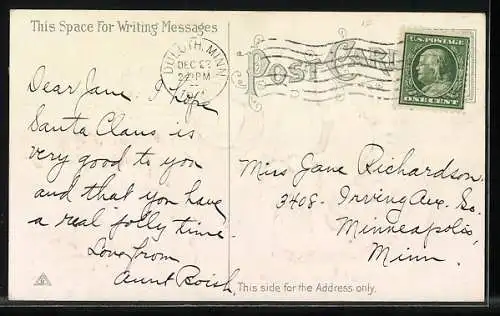 This Space For Writing Messages
DULUTH, MINN
DEC 23
POST CARD
U.S. POSTAGE
ONE CENT
Dear Jane, I hope
Santa Claus is
very good to you
and that you have
a real jolly time.
Love from
Aunt
Miss Jane Richardson
3408- Irving Ave. So.
Minneapolis,
Minn.
This side for the Address only.